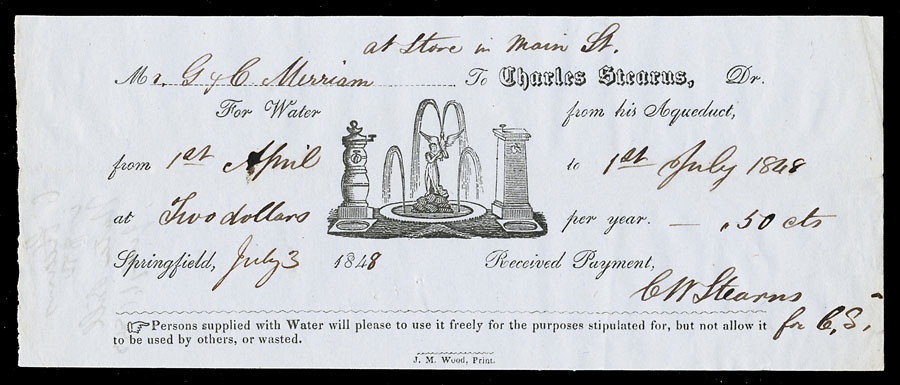 at Store in Main St.
Mr. G & C Merriam To Charles Stearns, Dr.
For Water from his Aqueduct,
from 1st April to 1st July 1848
at Two dollars per year. — .50 cts
Springfield, July 3 1848 Received Payment,
C W Stearns
for C. S.
☞Persons supplied with Water will please to use it freely for the purposes stipulated for, but not allow it
to be used by others, or wasted.
J. M. Wood, Print.